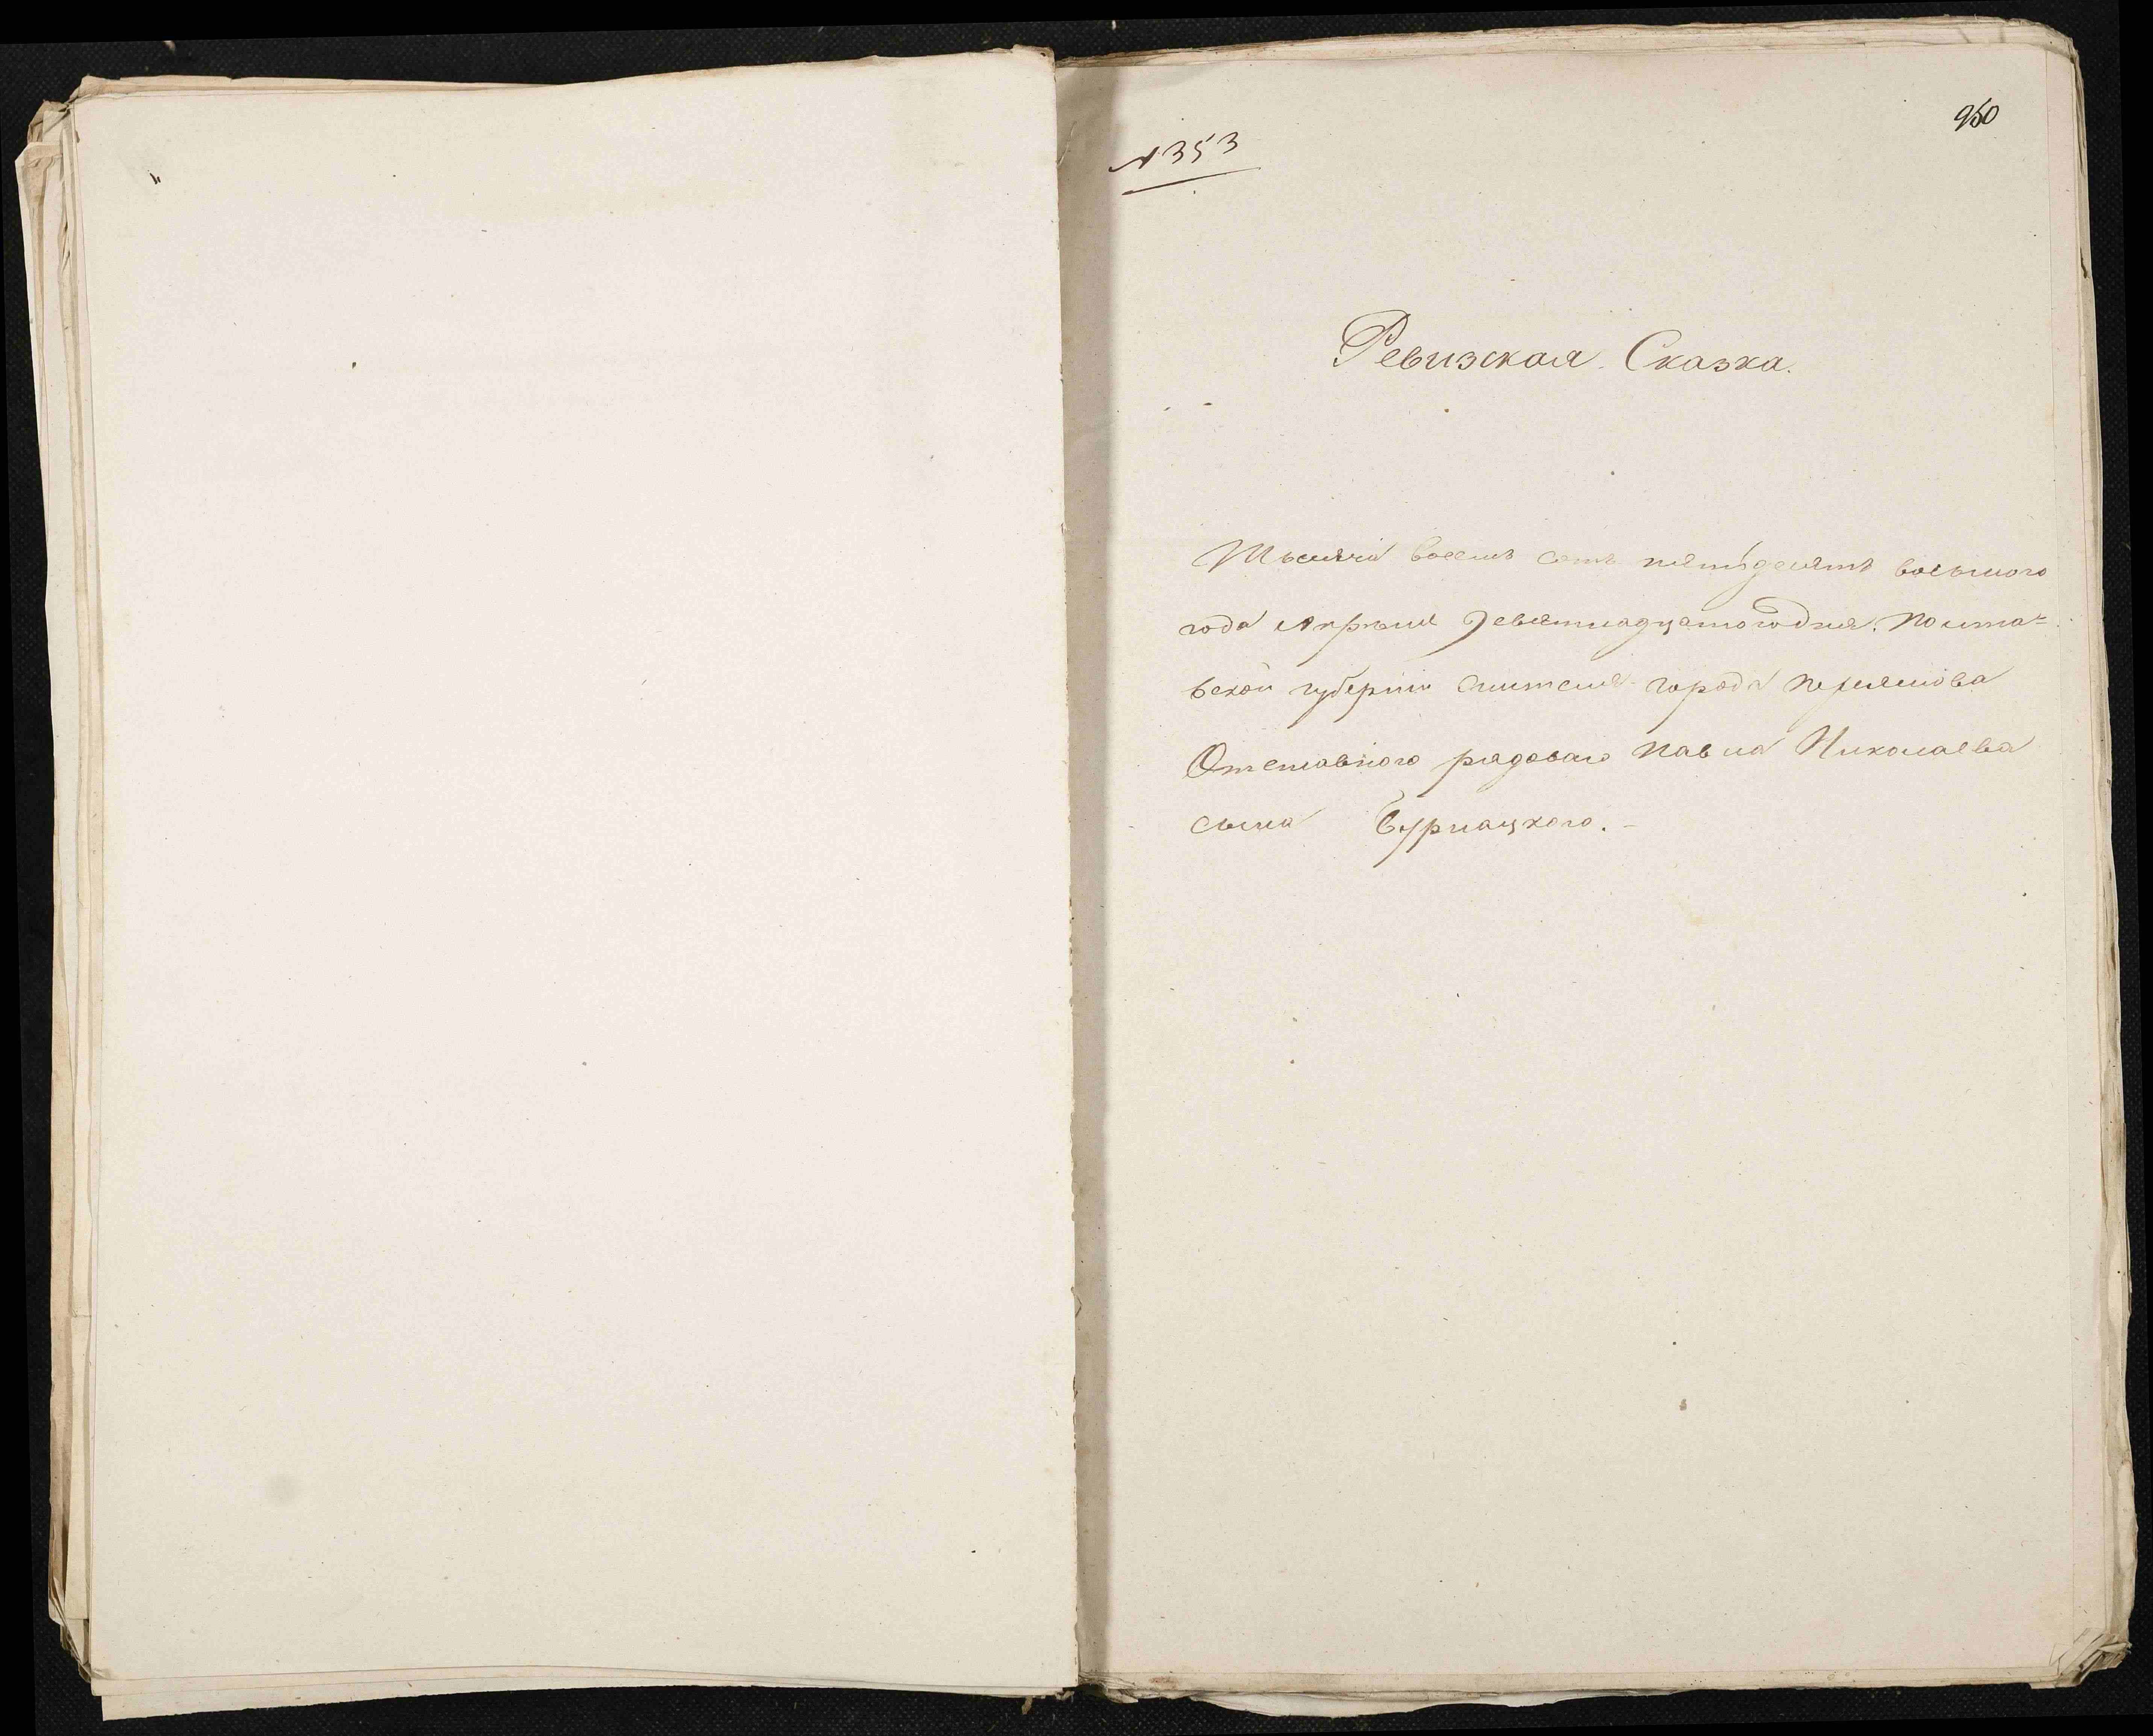 950
№ 353
Ревизская Сказка.
Тысяча восемь сотъ пятьдесятъ восьмого
года Апреля девятнадцатого дня. Полта=
вской губернии жителя города
Отставного рядоваго Павла Николаева
сына Бурнацкого. –